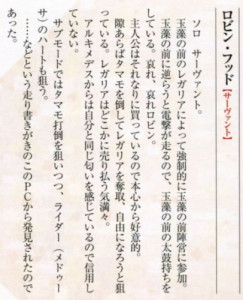 ロビン・フッド【サーヴァント】
ソロ サーヴァント。
玉藻の前のレガリアによって強制的に玉藻の前陣営に参加。
玉藻の前に逆らうと電撃が走るので、玉藻の前の太鼓持ちを
している。哀れ、哀れロビン。
主人公はそれなりに買っているので本心から好意的。
隙あらばタマモを倒してレガリアを奪取、自由になろうと狙
っている。レガリアはどこかに売り払う気満々。
アルキメデスからは自分と同じ匂いを感じているので信用し
ていない。
サブモードではタマモ打倒を狙いつつ、ライダー（メドゥー
サ）のハートも狙う。
……などという走り書きがきのこのPCから発見されたので
あった。